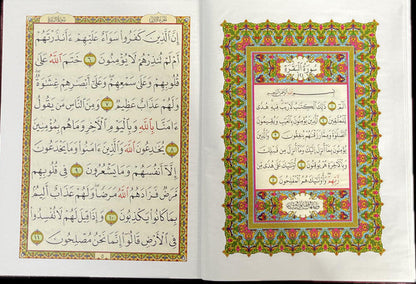 سُورَةُ الْبَقَرَةِ
بِسْمِ اللَّهِ الرَّحْمَٰنِ الرَّحِيمِ
الٓمٓ ۝١ ذَٰلِكَ ٱلْكِتَٰبُ لَا رَيْبَ فِيهِ هُدًى
لِّلْمُتَّقِينَ ۝٢ ٱلَّذِينَ يُؤْمِنُونَ بِٱلْغَيْبِ وَيُقِيمُونَ
ٱلصَّلَوٰةَ وَمِمَّا رَزَقْنَٰهُمْ يُنفِقُونَ ۝٣ وَٱلَّذِينَ
يُؤْمِنُونَ بِمَآ أُنزِلَ إِلَيْكَ وَمَآ أُنزِلَ مِن قَبْلِكَ
وَبِٱلْءَاخِرَةِ هُمْ يُوقِنُونَ ۝٤ أُو۟لَٰٓئِكَ عَلَىٰ هُدًى مِّن
رَّبِّهِمْ وَأُو۟لَٰٓئِكَ هُمُ ٱلْمُفْلِحُونَ ۝٥
إِنَّ ٱلَّذِينَ كَفَرُوا۟ سَوَآءٌ عَلَيْهِمْ ءَأَنذَرْتَهُمْ
أَمْ لَمْ تُنذِرْهُمْ لَا يُؤْمِنُونَ ۝٦ خَتَمَ ٱللَّهُ عَلَىٰ
قُلُوبِهِمْ وَعَلَىٰ سَمْعِهِمْ وَعَلَىٰٓ أَبْصَٰرِهِمْ غِشَٰوَةٌ
وَلَهُمْ عَذَابٌ عَظِيمٌ ۝٧ وَمِنَ ٱلنَّاسِ مَن يَقُولُ
ءَامَنَّا بِٱللَّهِ وَبِٱلْيَوْمِ ٱلْءَاخِرِ وَمَا هُم بِمُؤْمِنِينَ
۝٨ يُخَٰدِعُونَ ٱللَّهَ وَٱلَّذِينَ ءَامَنُوا۟ وَمَا يَخْدَعُونَ
إِلَّآ أَنفُسَهُمْ وَمَا يَشْعُرُونَ ۝٩ فِى قُلُوبِهِم
مَّرَضٌ فَزَادَهُمُ ٱللَّهُ مَرَضًا وَلَهُمْ عَذَابٌ أَلِيمٌۢ
بِمَا كَانُوا۟ يَكْذِبُونَ ۝١٠ وَإِذَا قِيلَ لَهُمْ لَا تُفْسِدُوا۟
فِى ٱلْأَرْضِ قَالُوٓا۟ إِنَّمَا نَحْنُ مُصْلِحُونَ ۝١١